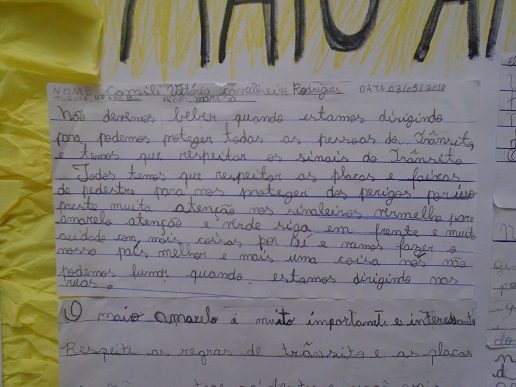 MAIO A
NOME Camili Vitória Cavalheira Rodrigues DATA 03/05/2018
TURMA PROF marisa
Nós devemos beber quando estamos dirigindo
para podemos proteger todas as pessoas do trânsito
e temos que respeitar os sinais do trânsito
Todos temos que respeitar as placas e faixas
de pedestre para nos proteger dos perigos por isso
preste muita atenção nos sinaleiros vermelho pare
amarelo atenção e verde siga em frente e muito
cuidado com mais coisas por aí e vamos fazer o
nosso país melhor e mais uma coisa nós não
podemos fumar quando estamos dirigindo nas
ruas.
O maio amarelo é muito importante e interessante
Respeite as regras de trânsito e as placas